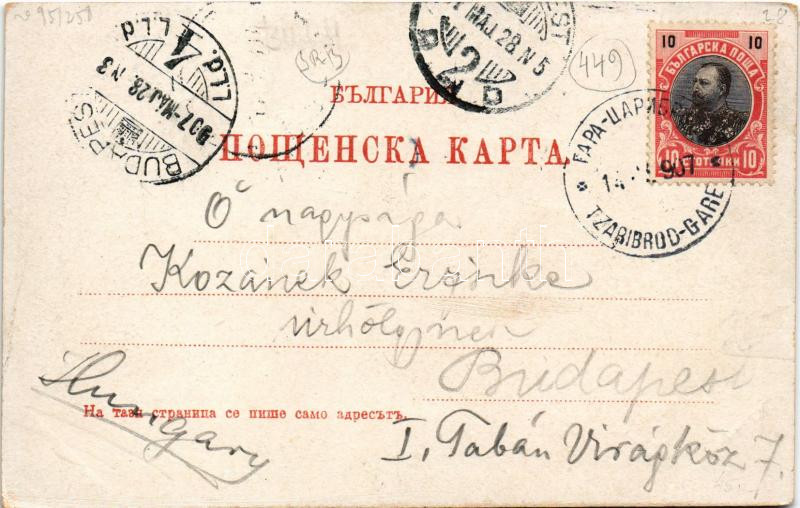 № 95/250
28
449
SRB
10 10
БЪЛГАРСКА ПОЩА
10 СТОТИНКИ 10
BUDAPEST
907 MÁJ. 28. N 3
4
MÁJ 28 N 5
2
ГАРА-ЦАРИБ
14 907
TZARIBROD-GARE
БЪЛГАРИЯ
ПОЩЕНСКА КАРТА
Ő nagysága
Kozánek Erzsike
úrhölgynek
Budapest
Hungary
На тази страница се пише само адресътъ.
I, Tabán Virágköz 7.